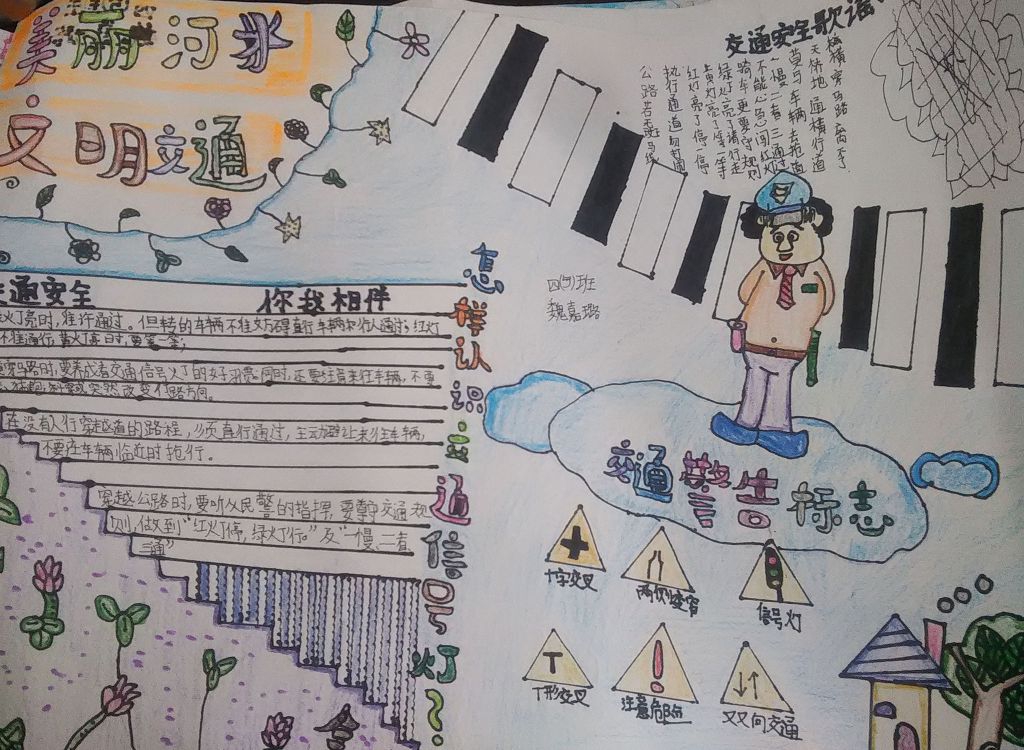 美丽河北
文明交通
交通安全
你我相伴
灯亮时,准许通过。但转的车辆不准妨碍直行车辆和行人通过;红灯
时,要养成看交通信号灯的好习惯,同时,还要注意来往车辆,不要
突然改变行路方向。
在没有人行穿越道的路程,必须直行通过,主动避让来往车辆,
不要在车辆临近时抢行。
穿越公路时,要听从民警的指挥,要遵守交通规
则,做到“红灯停,绿灯行。”及“一慢、二看、
三通”
怎样认识交通信号灯?
交通安全歌谣
横穿马路离手
天桥地 道
莫与车辆去抢道
慢 看三通过
不能心急闯红灯
骑车更要守规则
绿灯亮了请行走
黄灯亮了等一等
红灯亮了停一停
执行通道
公路 斑马线
四(5)班
魏嘉璐
交通警告标志
十字交叉
两侧变窄
信号灯
T
T形交叉
注意危险
双向交通